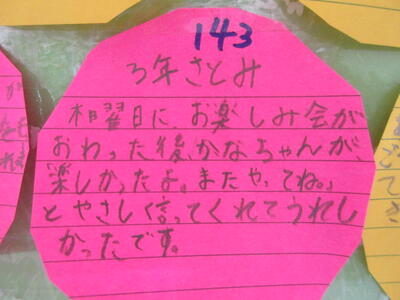 143
3年さとみ
相曜日に、お楽しみ会が
おわった後、かなちゃんが、
「楽しかったよ。またやってね。」
とやさしく信ってくれてうれし
かったです。